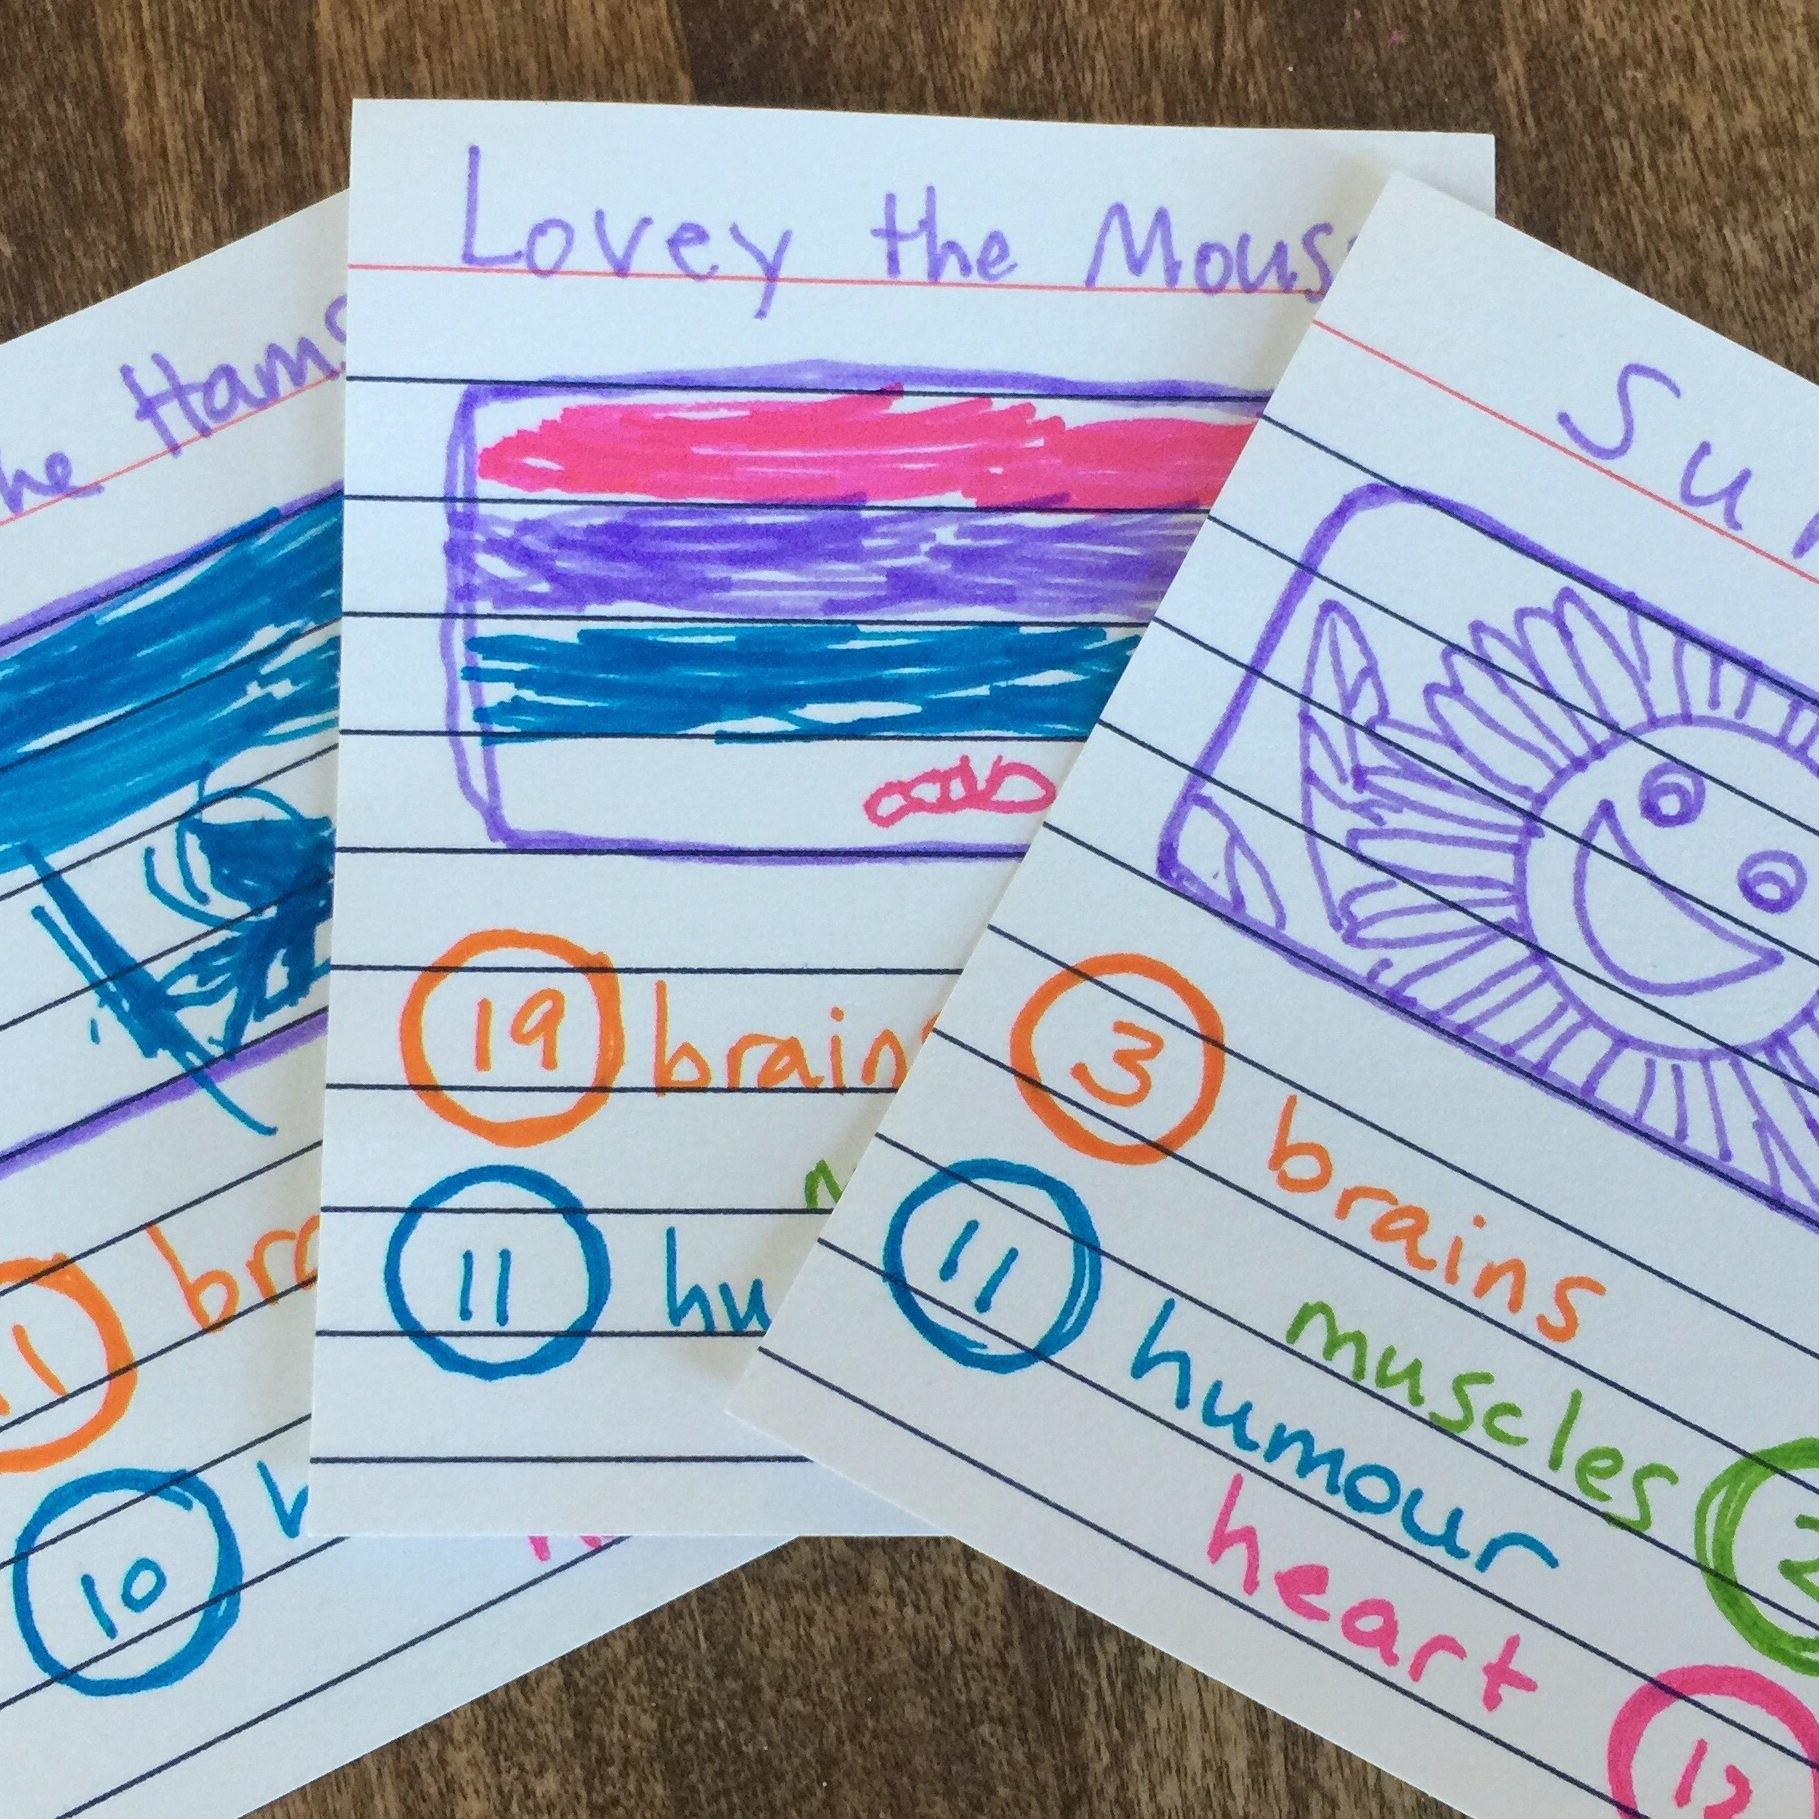 he Hams
10
Lovey the Mous
19 brain
11 hu
3 brains
muscles
11 humour
heart